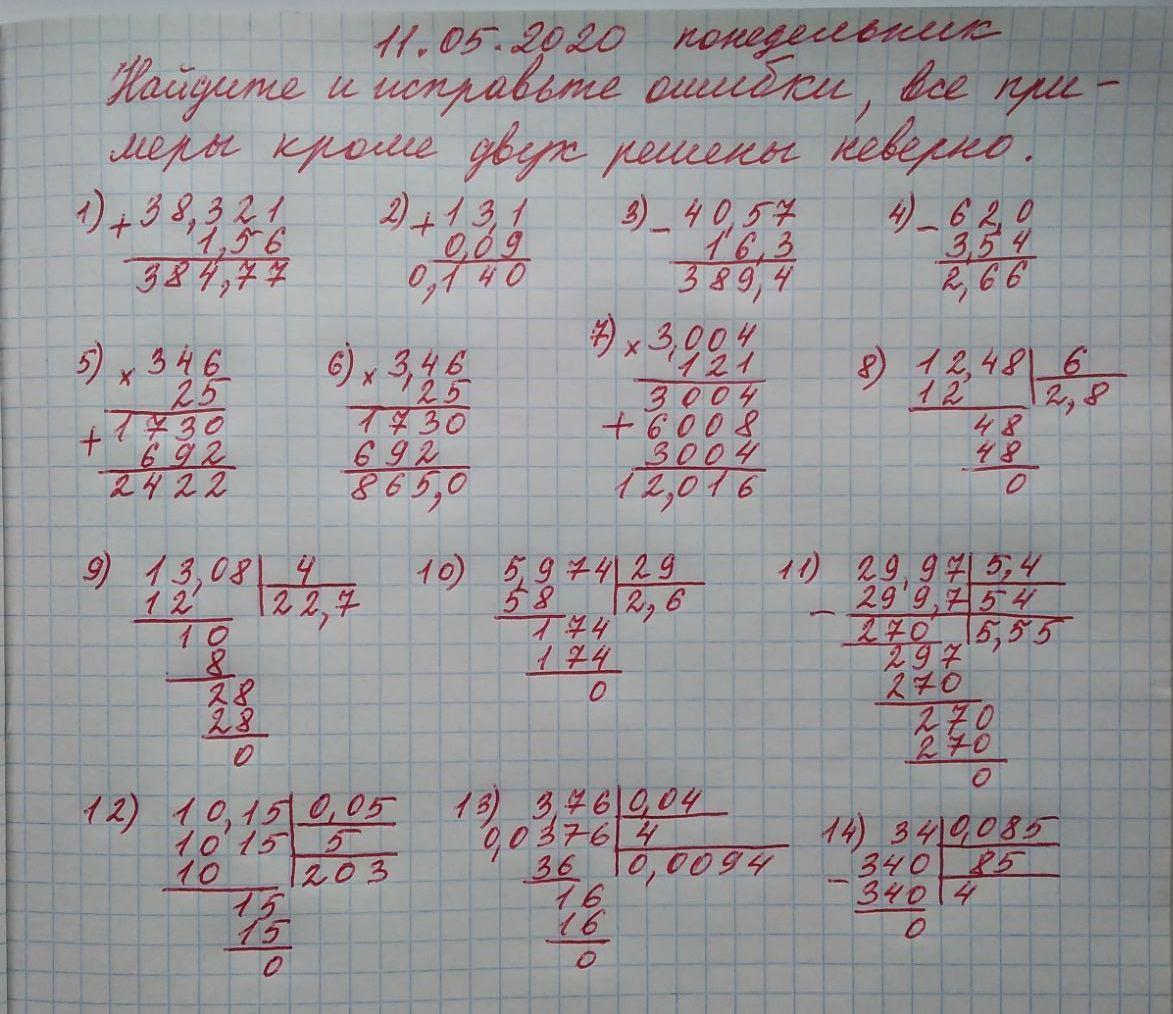 11.05.2020 понедельник
Найдите и исправьте ошибки, все при-
меры кроме двух решены неверно.
1) + 38,321
1,56
384,77
2) + 13,1
0,09
0,140
3) - 40,57
16,3
389,4
4) - 62,0
3,54
2,66
5) × 346
25
+ 1730
692
2422
6) × 3,46
25
1730
692
865,0
7) × 3,004
121
3004
+ 6008
3004
12,016
8) 12,48 | 6
12 | 2,8
48
48
0
9) 13,08 | 4
12 | 22,7
10
8
28
28
0
10) 5,974 | 29
58 | 2,6
174
174
0
11) 29,97 | 5,4
- 299,7 | 54
270 | 5,55
297
270
270
270
0
12) 10,15 | 0,05
1015 | 5
10 | 203
15
15
0
13) 3,76 | 0,04
0,0376 | 4
36 | 0,0094
16
16
0
14) 34 | 0,085
- 340 | 85
340 | 4
0